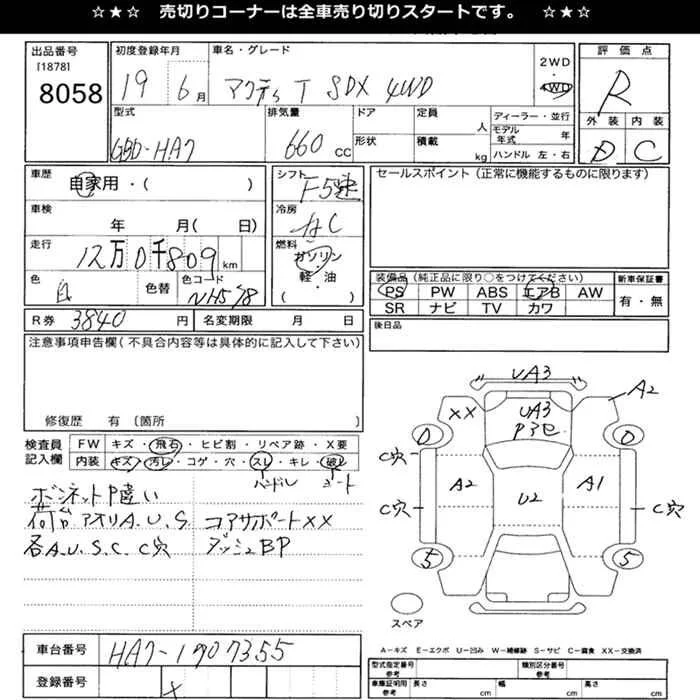 ☆★☆ 売切りコーナーは全車売り切りスタートです。 ☆★☆
出品番号 [1878] 8058
初度登録年月 19 6月
車名・グレード アクティT SDX 4WD
2WD・4WD
評価点 R
外装 D 内装 C
型式 GBD-HA7
排気量 660 cc
ドア 形状
定員 人 積載 kg
ディーラー・並行
モデル年式 年
ハンドル 左・右
車歴 自家用・( )
車検 年 月( 日)
走行 12万0千809 km
色 白 色替 色コード NH578
シフト F5速
冷房 AC
燃料 ガソリン・軽・油 ( )
セールスポイント(正常に機能するものに限ります)
装備品(純正品に限り○をつけてください)
PS PW ABS エアB AW
SR ナビ TV カワ
新車保証書 有・無
R券 3840 円 名変期限 月 日
後日品
注意事項申告欄(不具合内容等は具体的に記入して下さい)
修復歴 有 〔箇所 〕
検査員記入欄
FW キズ・飛石・ヒビ割・リペア跡・X要
内装 キズ・汚レ・コゲ・穴・スレ・キレ・破レ
ハンドル シート
ボンネットP違い
荷台アオリA.U.S コアサポートXX
各A.U.S.C. C穴 ダッシュBP
UA3
A2
XX
UA3
D
D
C穴
A2
U2
A1
C穴
C穴
5
5
スペア
A-キズ E-エクボ U-凹み W-補修跡 S-サビ C-腐食 XX-交換済
車台番号 HA7-1707355
登録番号 X
型式指定番号 参考 類別区分番号 参考
車庫証明用 参考 長さ cm 幅 cm 高さ cm